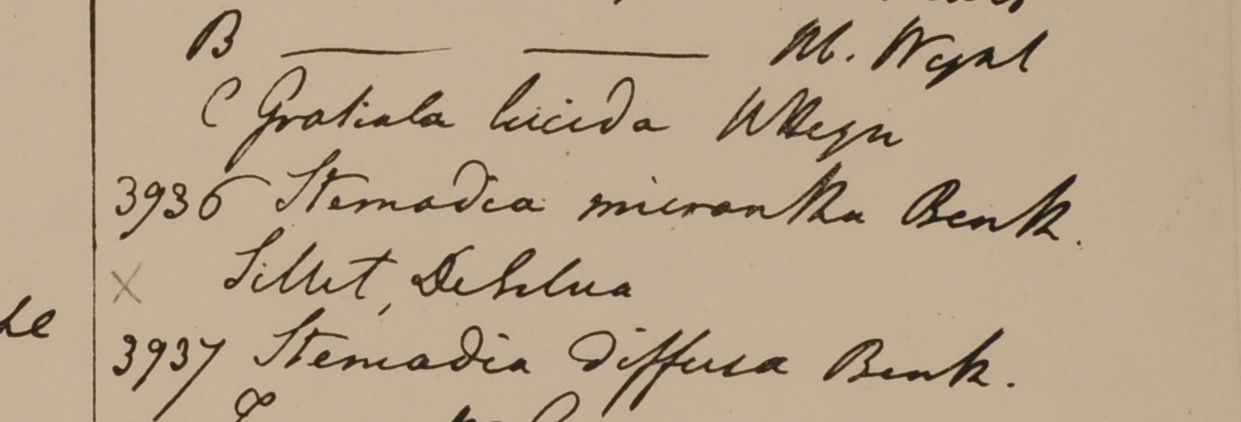 B — — 
C Gratiola lucida
3936 Stemodia micrantha Benth.
× Sillet, DeSilva
3937 Stemodia diffusa Benth.